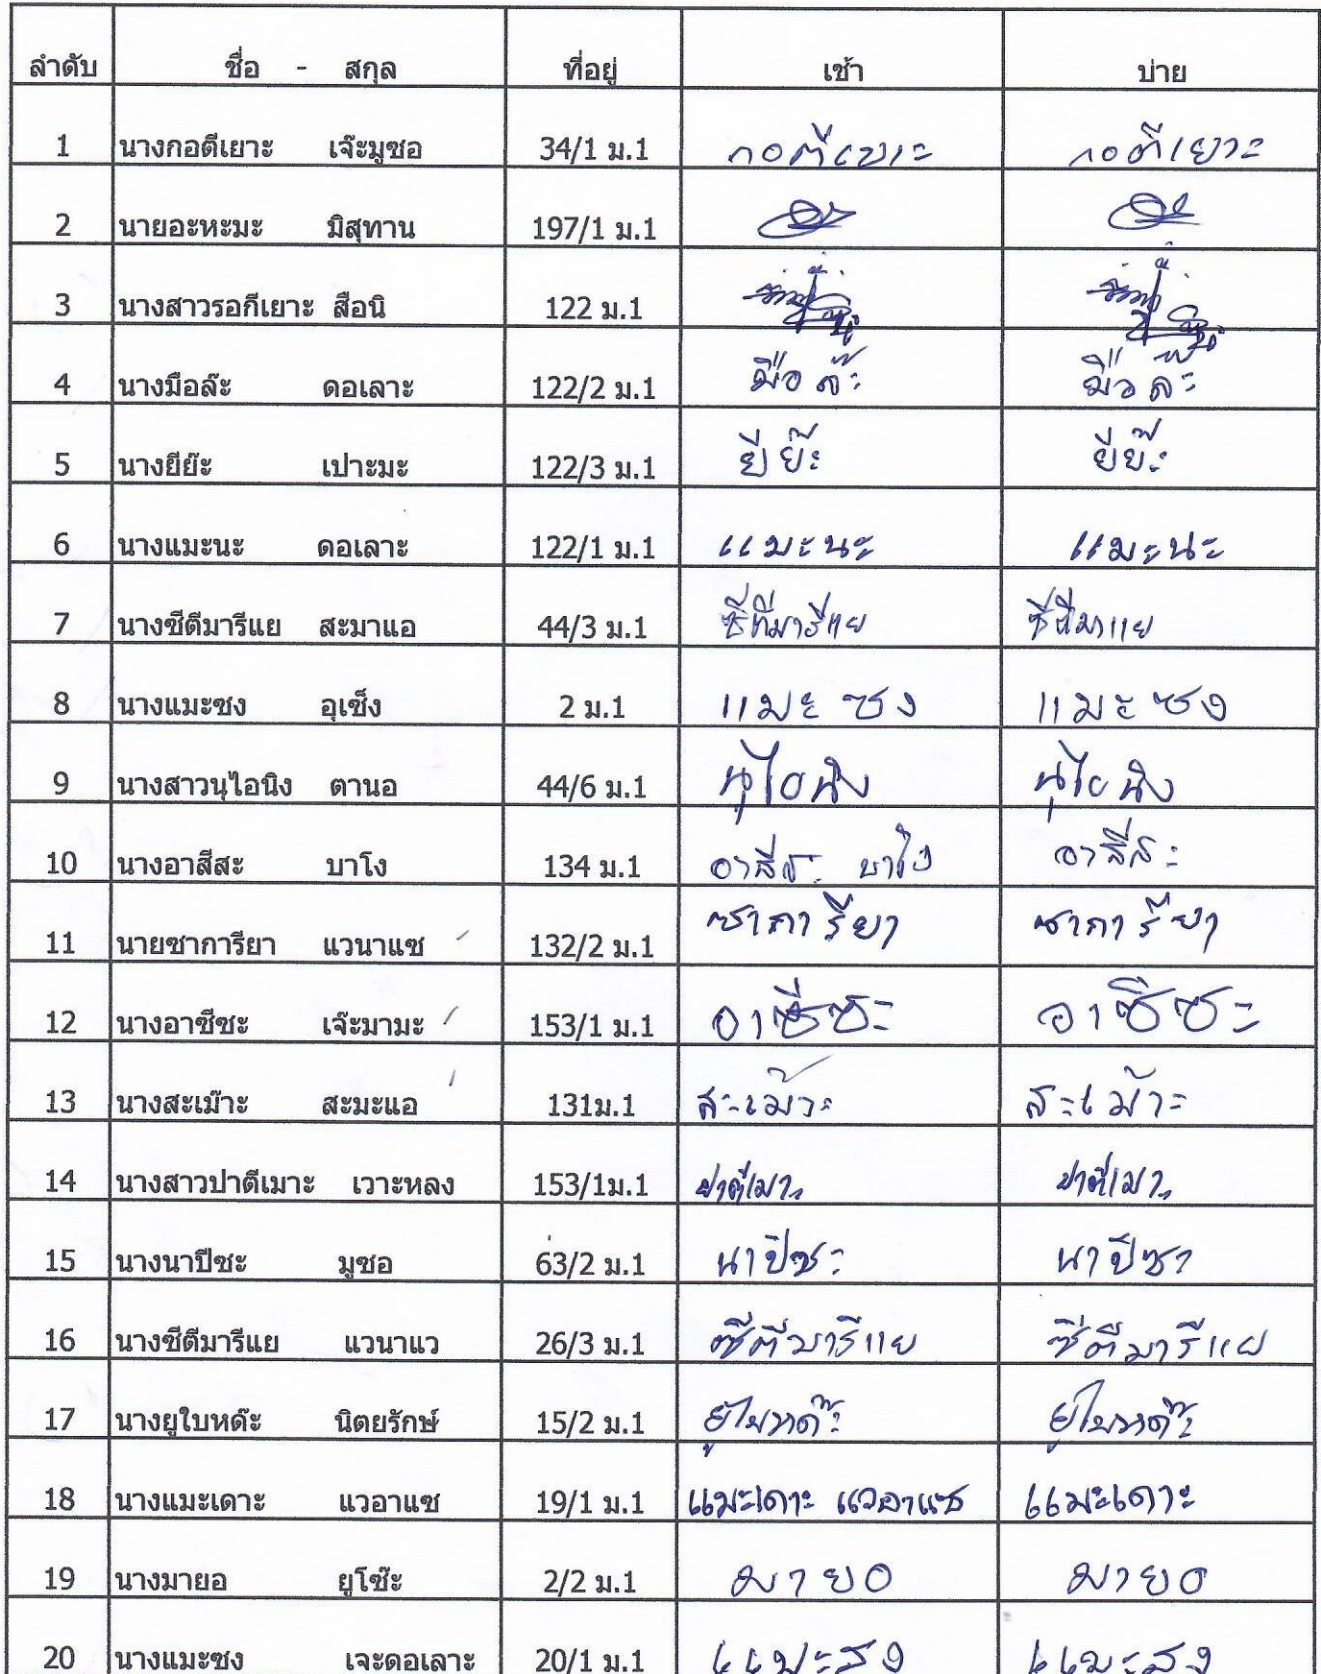 ลำดับ ชื่อ - สกุล ที่อยู่ เช้า บ่าย
1 นางกอตีเยาะ เจ๊ะมูซอ 34/1 ม.1 กอตีเยาะ กอตีเยาะ
2 นายอะหะมะ มิสุทาน 197/1 ม.1
3 นางสาวรอกีเยาะ สือนิ 122 ม.1
4 นางมือล๊ะ ดอเลาะ 122/2 ม.1 มือล๊ะ มือล๊ะ
5 นางยีย๊ะ เปาะมะ 122/3 ม.1 ยีย๊ะ ยีย๊ะ
6 นางแมะนะ ดอเลาะ 122/1 ม.1 แมะนะ แมะนะ
7 นางซีตีมารีแย สะมาแอ 44/3 ม.1 ซีตีมารีแย ซีตีมาแย
8 นางแมะซง อุเซ็ง 2 ม.1 แมะซง แมะซง
9 นางสาวนุไอนิง ตานอ 44/6 ม.1 นุไอนิง นุไอนิง
10 นางอาสีสะ บาโง 134 ม.1 อาสีสะ บาโง อาสีสะ
11 นายซาการียา แวนาแซ 132/2 ม.1 ซาการียา ซาการียา
12 นางอาซีซะ เจ๊ะมามะ 153/1 ม.1 อาซีซะ อาซีซะ
13 นางสะเม๊าะ สะมะแอ 131ม.1 สะเม๊าะ สะเม๊าะ
14 นางสาวปาตีเมาะ เวาะหลง 153/1ม.1 ปาตีเมาะ ปาตีเมาะ
15 นางนาปีซะ มูซอ 63/2 ม.1 นาปีซะ นาปีซะ
16 นางซีตีมารีแย แวนาแว 26/3 ม.1 ซีตีมารีแย ซีตีมารีแย
17 นางยูใบหด๊ะ นิตยรักษ์ 15/2 ม.1 ยูไบหด๊ะ ยูไบหด๊ะ
18 นางแมะเดาะ แวอาแซ 19/1 ม.1 แมะเดาะ แวอาแซ แมะเดาะ
19 นางมายอ ยูโซ๊ะ 2/2 ม.1 มายอ มายอ
20 นางแมะซง เจะดอเลาะ 20/1 ม.1 แมะสง แมะสง